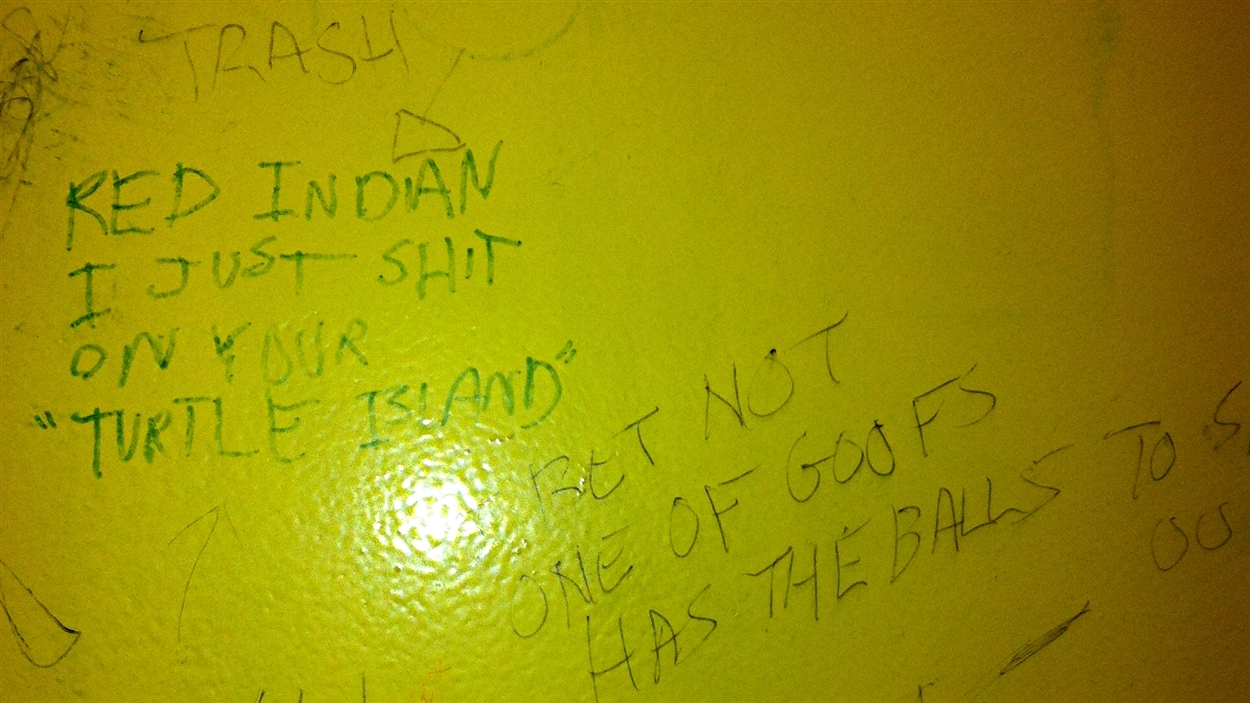 TRASH
RED INDIAN
I JUST SHIT
ON YOUR
"TURTLE ISLAND"
BET NOT
ONE OF GOOFS
HAS THE BALLS TO S
OU